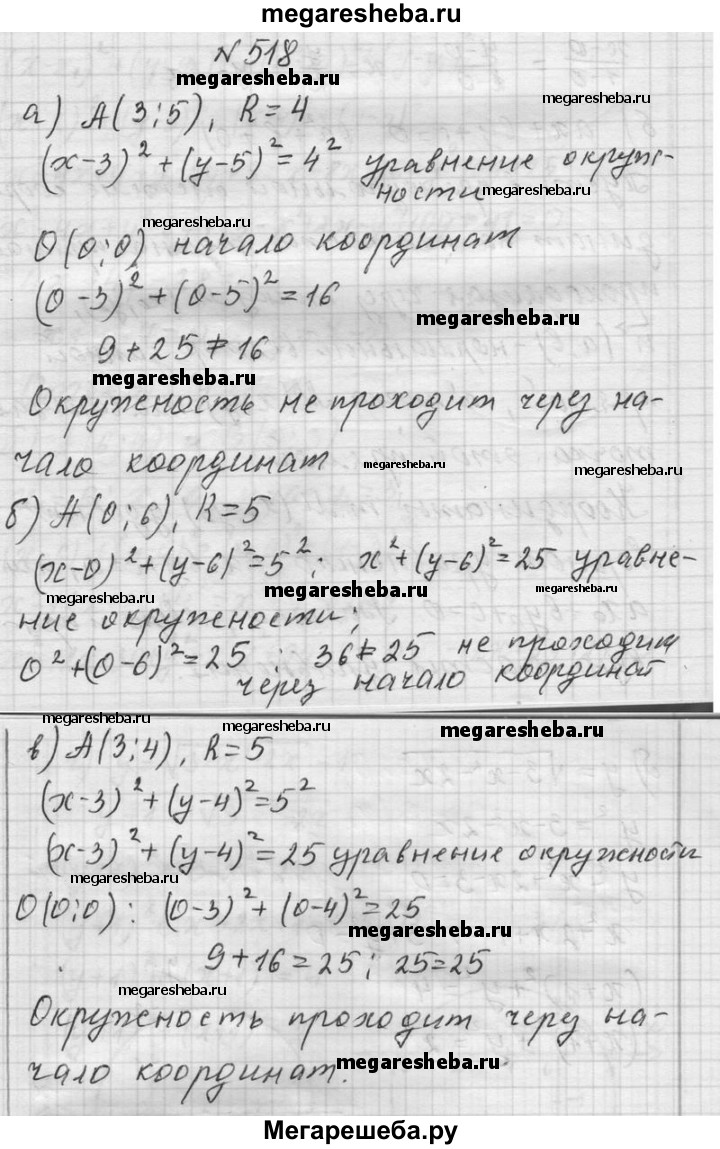 megaresheba.ru
N 518
megaresheba.ru
megaresheba.ru
а) А(3;5), R=4
(x-3)² + (y-5)² = 4² уравнение окруж-
ности
megaresheba.ru
megaresheba.ru
O(0;0) начало координат
(0-3)² + (0-5)² = 16
megaresheba.ru
9 + 25 ≠ 16
megaresheba.ru
Окружность не проходит через на-
чало координат
megaresheba.ru
megaresheba.ru
б) А(0;6), R=5
(x-0)² + (y-6)² = 5²; x² + (y-6)² = 25 уравне-
megaresheba.ru
megaresheba.ru
megaresheba.ru
ние окружности;
0² + (0-6)² = 25 ; 36 ≠ 25 не проходит
через начало координат
megaresheba.ru
megaresheba.ru
megaresheba.ru
в) А(3;4), R=5
(x-3)² + (y-4)² = 5²
(x-3)² + (y-4)² = 25 уравнение окружности
megaresheba.ru
O(0;0): (0-3)² + (0-4)² = 25
megaresheba.ru
9 + 16 = 25; 25 = 25
megaresheba.ru
Окружность проходит через на-
чало координат.
megaresheba.ru
Мегарешеба.ру